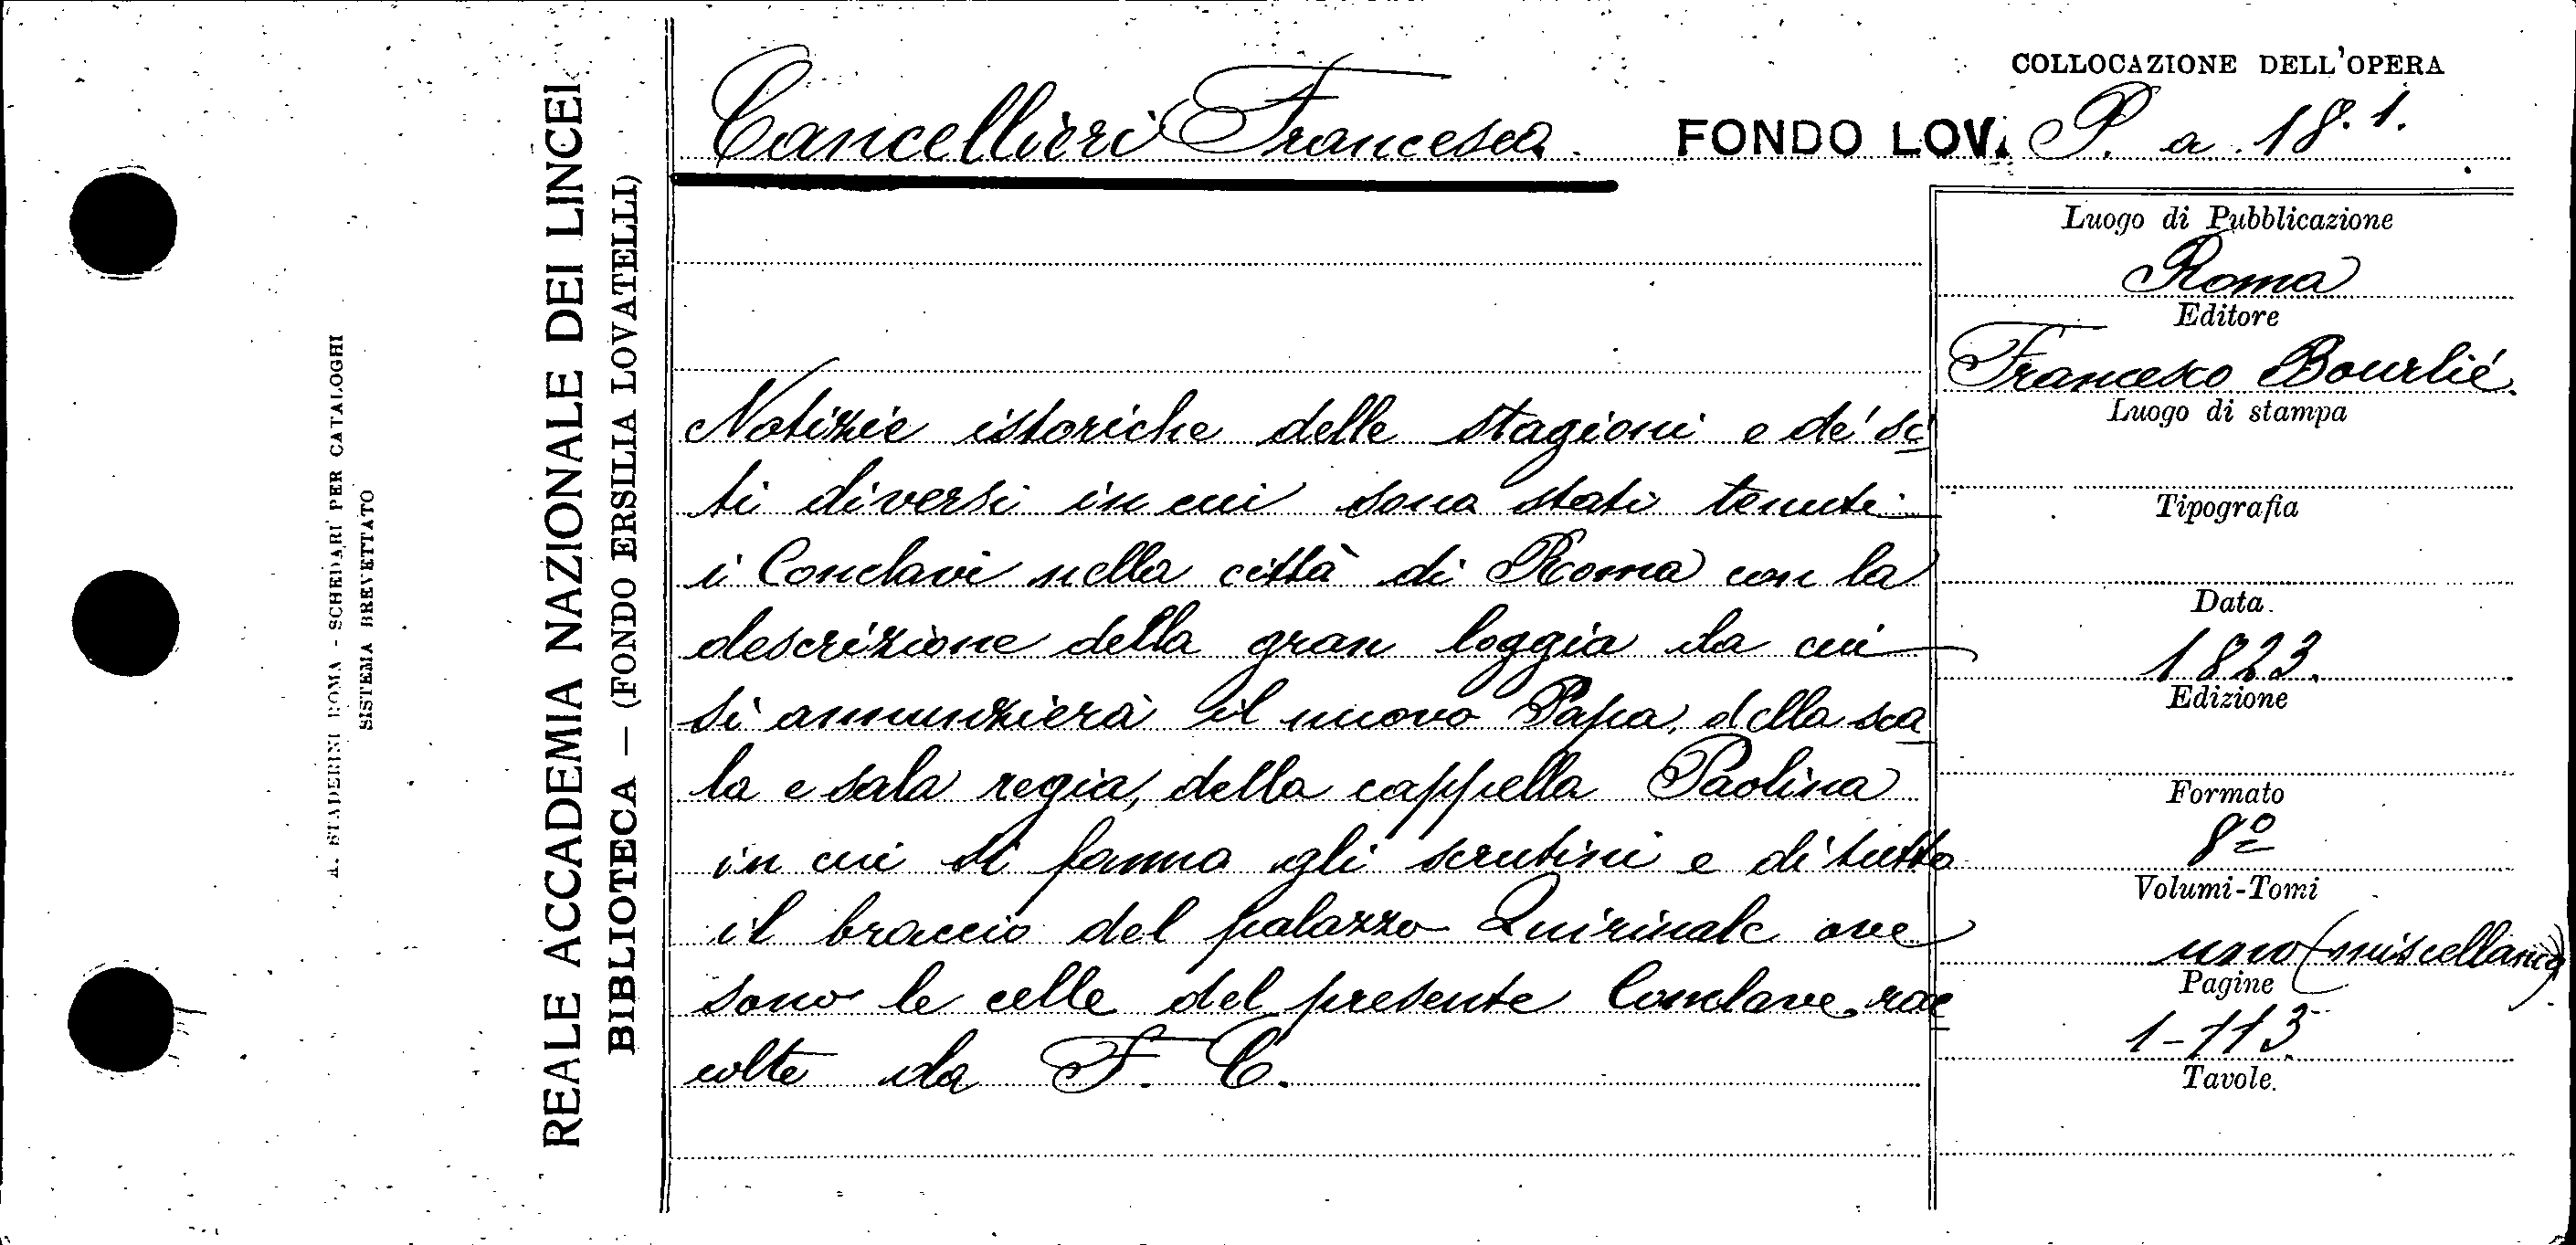 A. STADERINI ROMA - SCHEDARI PER CATALOGHI
SISTEMA BREVETTATO
REALE ACCADEMIA NAZIONALE DEI LINCEI
BIBLIOTECA — (FONDO ERSILIA LOVATELLI)
COLLOCAZIONE DELL'OPERA
Cancellieri Francesco. FONDO LOV. P. a. 18. 1.
Notizie istoriche delle stagioni e de' si
ti diversi in cui sono stati tenuti
i Conclavi nella città di Roma con la
descrizione della gran loggia da cui
si annunzierà il nuovo Papa, della sca
la e sala regia, della cappella Paolina
in cui si fanno gli scrutini e di tutto
il braccio del palazzo Quirinale ove
sono le celle del presente Conclave rac
colte da F. C.
Luogo di Pubblicazione
Roma
Editore
Francesco Bourlié.
Luogo di stampa
Tipografia
Data.
1823.
Edizione
Formato
8º
Volumi-Tomi
uno (miscellanea)
Pagine
1-113
Tavole.